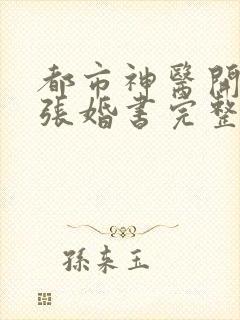 都市神醫開
張婚書完整
孫來玉